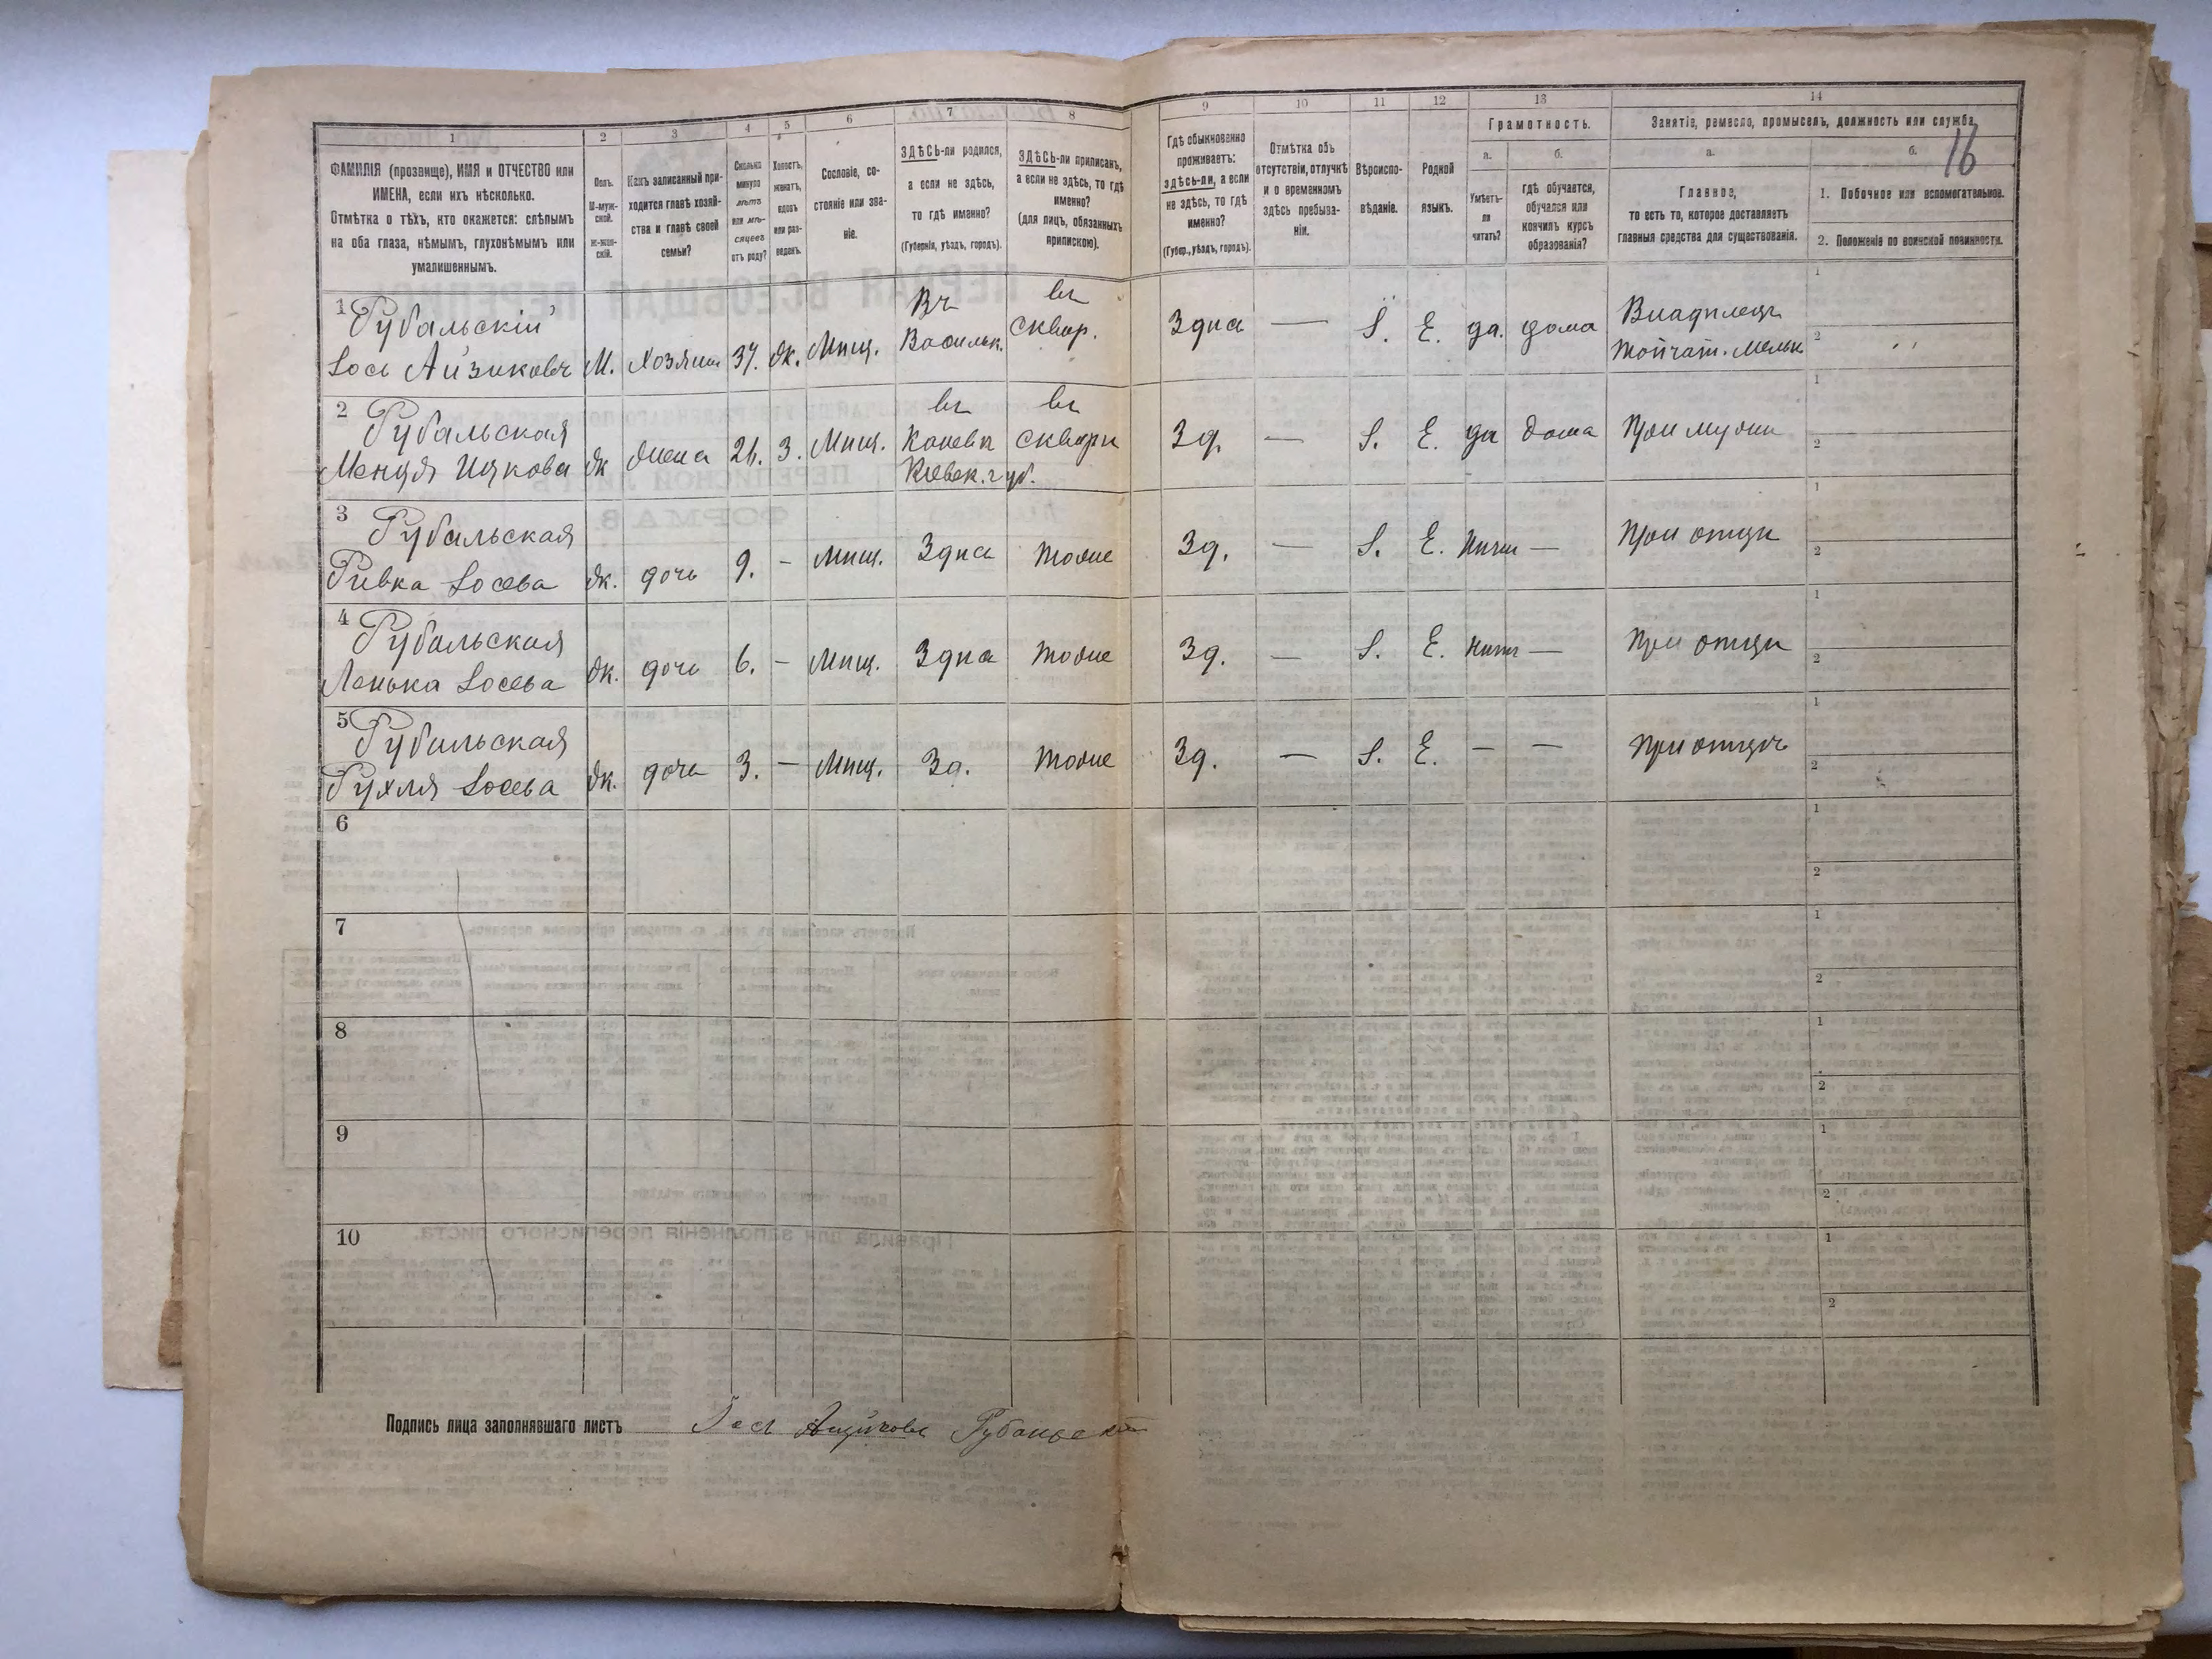 1
2
3
4
5
6
7
8
9
10
11
12
13
14
ФАМИЛІЯ (прозвище), ИМЯ и ОТЧЕСТВО или
ИМЕНА, если ихъ нѣсколько.
Отмѣтка о тѣхъ, кто окажется: слѣпымъ
на оба глаза, нѣмымъ, глухонѣмымъ или
умалишеннымъ.
Полъ.
М-муж-
ской.
Ж-жен-
скій.
Какъ записанный при-
ходится главѣ хозяй-
ства и главѣ своей
семьи?
Сколько
минуло
лѣтъ
или мѣ-
сяцевъ
отъ роду?
Холостъ,
женатъ,
вдовъ
или раз-
веденъ.
Сословіе, со-
стояніе или зва-
ніе.
ЗДѢСЬ-ли родился,
а если не здѣсь,
то гдѣ именно?
(Губернія, уѣздъ, городъ).
ЗДѢСЬ-ли приписанъ,
а если не здѣсь, то гдѣ
именно?
(для лицъ, обязанныхъ
припискою).
Гдѣ обыкновенно
проживаетъ:
здѣсь-ли, а если
не здѣсь, то гдѣ
именно?
(Губер., уѣздъ, городъ).
Отмѣтка объ
отсутствіи, отлучкѣ
и о временномъ
здѣсь пребыва-
ніи.
Вѣроиспо-
вѣданіе.
Родной
языкъ.
Грамотность.
а.
Умѣетъ-
ли
читать?
б.
гдѣ обучается,
обучался или
кончилъ курсъ
образованія?
Занятіе, ремесло, промыселъ, должность или служба.
а.
Главное,
то есть то, которое доставляетъ
главныя средства для существованія.
б.
16
1. Побочное или вспомогательное.
2. Положеніе по воинской повинности.
1 Рубальскій
Іось Айзиковъ М. хозяинъ 37. ж. Мѣщ. Въ Васильк. въ сквир. Здѣсь — І. Е. да. дома
2 Рубальская
Менця Ицкова ж жена 26. З. Мѣщ. въ Каневѣ Кіевск. губ. въ сквирѣ Зд. — І. Е. да дома При мужѣ
3 Рубальская
Ривка Іосева ж. дочь 9. — Мѣщ. тоже Зд. — І. Е. нѣтъ — При отцѣ
4 Рубальская
Ленька Іосева ж. дочь 6. — Мѣщ. тоже Зд. — І. Е. нѣтъ — При отцѣ
5 Рубальская
Рухля Іосева ж. дочь 3. — Мѣщ. Зд. тоже Зд. — І. Е. — — При отцѣ
6
7
8
9
10
Подпись лица заполнявшаго листъ Іось Рубальскій